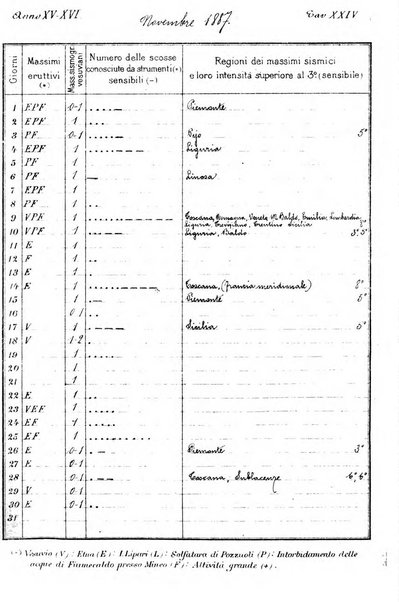 Anno XV-XVI Novembre 1887. Tav XXIV
Giorni
Massimi eruttivi (+)
Mass. sismogr. vesuviani
Numero delle scosse conosciute da strumenti (•) sensibili (-)
Regioni dei massimi sismici e loro intensità superiore al 3º (sensibile)
1 EPF 0-1 ....- Piemonte
2 EPF 1 ...
3 PF 0-1 .....- Pejo 5º
4 EPF 1 ....-- Liguria
5 PF 1 ....
6 PF 1 — Linosa
7 EPF 1
8 PF 1 ..
9 VPF 1 Toscana, Romagna, Veneto, M. Baldo, Emilia, Lombardia,
Liguria, Trentino Sicilia
10 VPF 1 Liguria, Baldo 3º.5º
11 E 1 ..
12 F 1 ..
13 E 1
14 E 1 Toscana, (Francia meridionale) 8º
15 1 .- Piemonte 5º
16 0-1 ..
17 V 1 Sicilia 5º
18 V 1-2 ..
19 1
20 1
21 1
22 E 1
23 VEF 1
24 EF 1
25 EF 1
26 E 0-1 .- Piemonte 3º
27 E 0-1
28 0-1 Toscana, 6º,6º
29 V 0-1
30 E 0-1
31
(+) Vesuvio (V): Etna (E): I. Lipari (L): Solfatara di Pozzuoli (P): Intorbidamento delle
acque di Fiumecaldo presso Mineo (F): Attività grande (+).